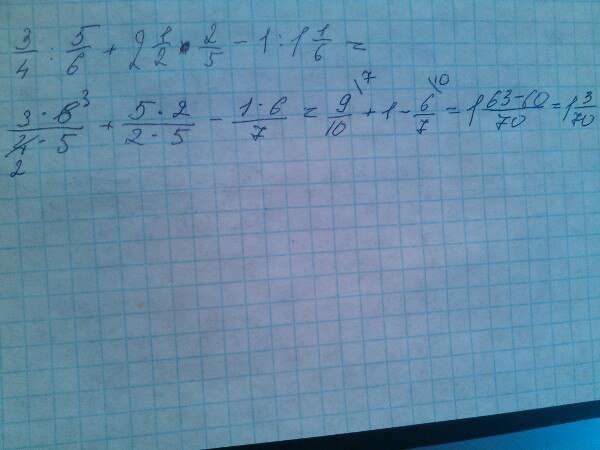 3/4 : 5/6 + 2 1/2 · 2/5 - 1 : 1 1/6 =
3·6 3/4·5 2 + 5·2/2·5 - 1·6/7 = 9/10 \7 + 1 - 6/7 \10 = 1 63-60/70 = 1 3/70